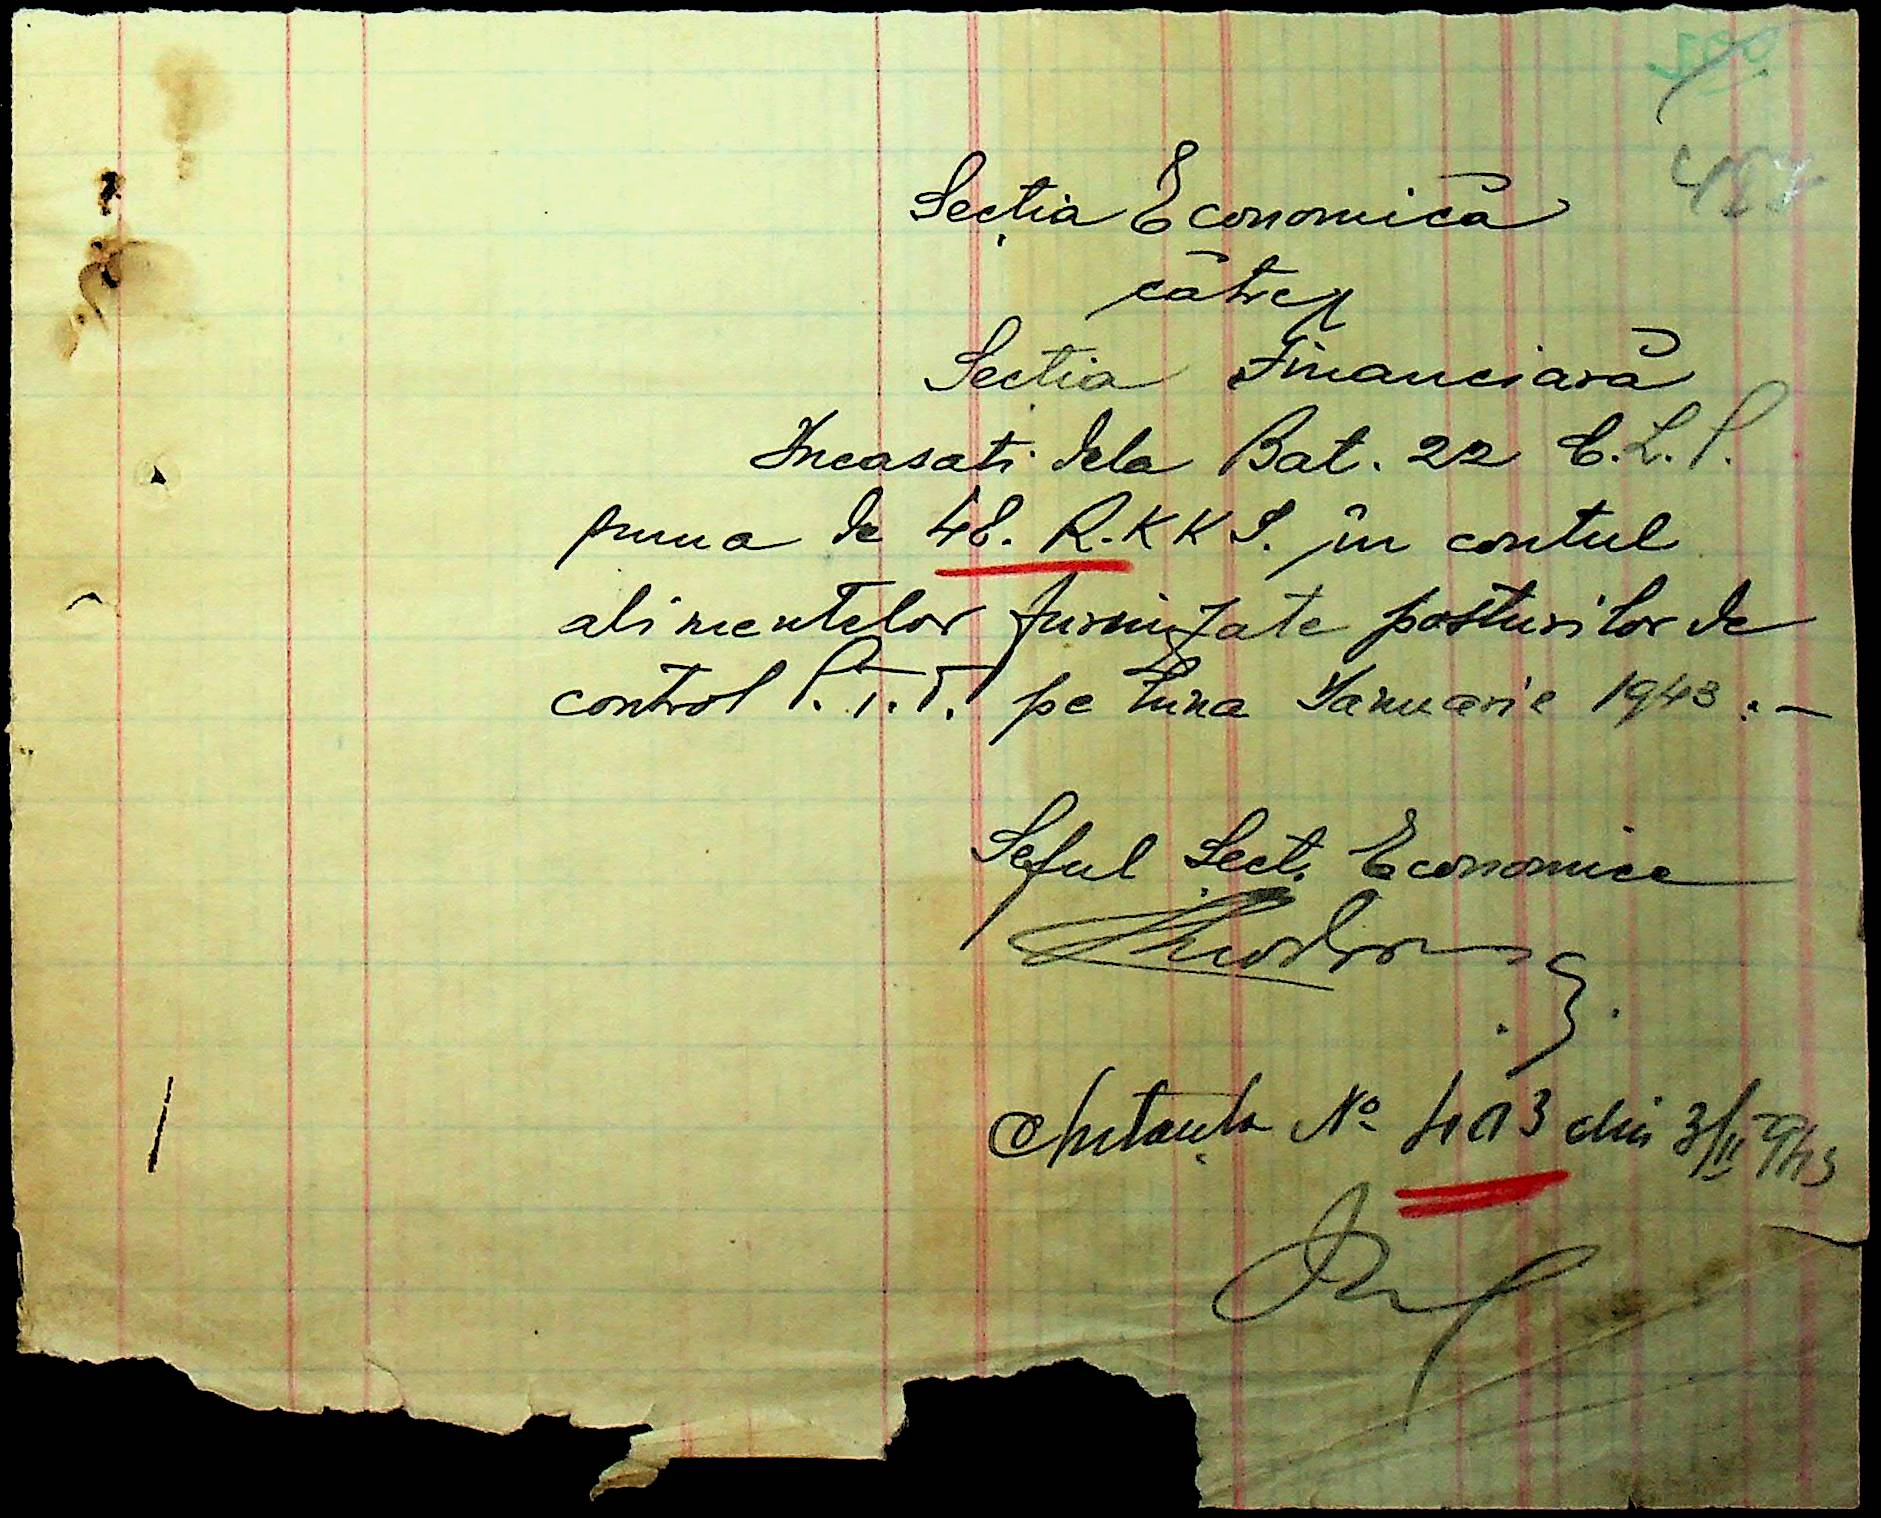 500
427
Secția Economică
către
Secția Financiară
Incasati dela Bat. 22 E.L.P.
suma de 48. R.KKS. în contul
alimentelor furnizate posturilor de
control P.T.T. pe luna Ianuarie 1943.-
Seful Secț. Economice
Chitanța No 403 din 3/II 943